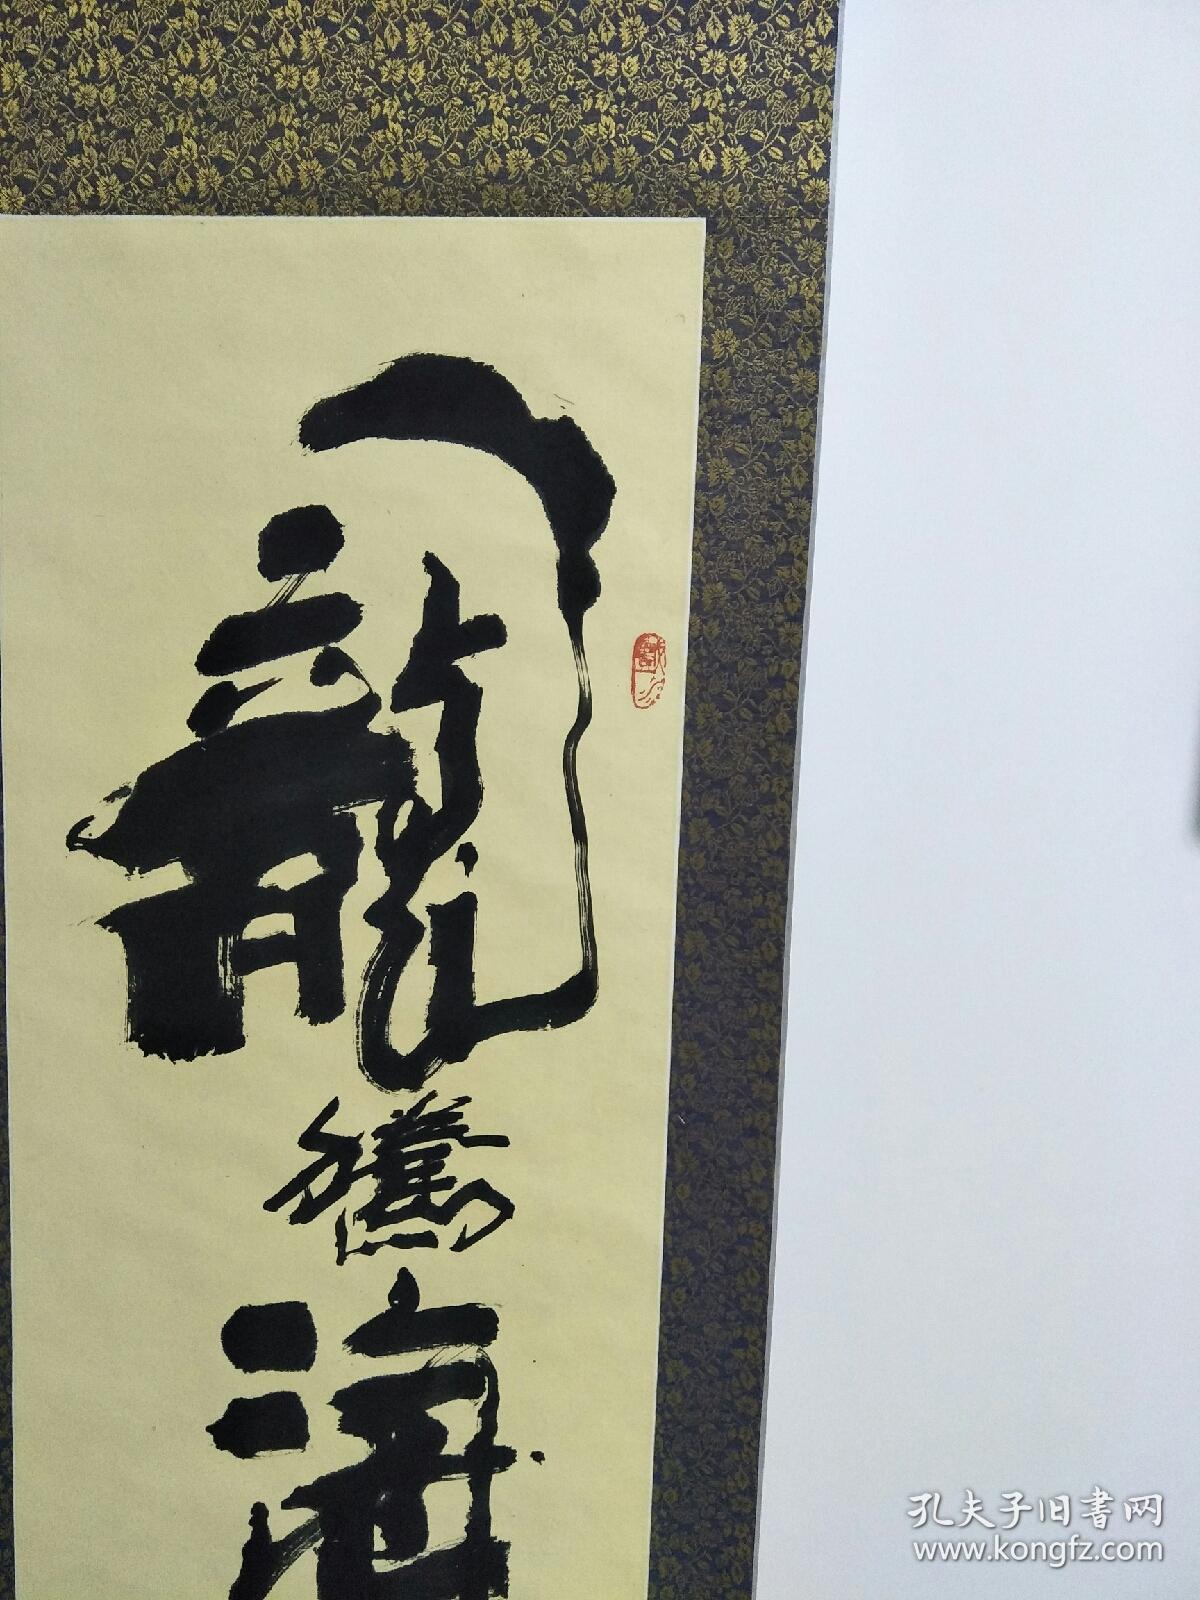 龍騰海
孔夫子旧書网
www.kongfz.com